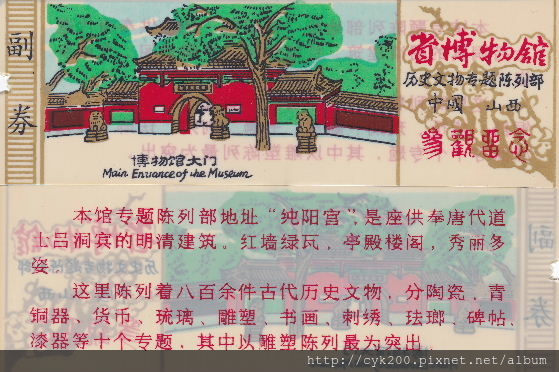 副券
省博物馆
历史文物专题陈列部
中國 山西
參觀畱念
博物馆大门
Main Entrance of the Museum
本馆专题陈列部地址“纯阳宫”,是座供奉唐代道
士吕洞宾的明清建筑。红墙绿瓦,亭殿楼阁,秀丽多
姿。
这里陈列着八百余件古代历史文物,分陶瓷、青
铜器、货币、琉璃、雕塑、书画、刺绣、珐瑯、碑帖、
漆器等十个专题,其中以雕塑陈列最为突出。
http://cyk200.pixnet.net/album